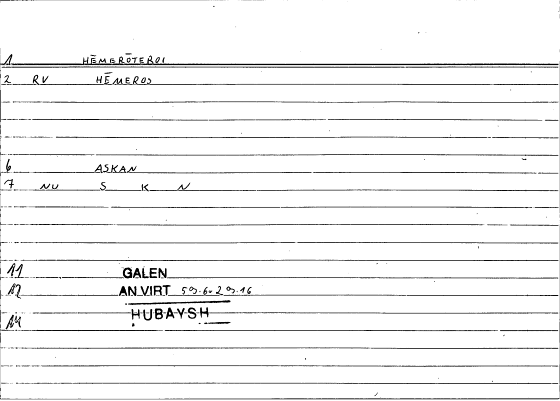 1 HĒMERŌTEROI
2 RV HĒMEROS
6 ASKAN
7 NU S K N
11 GALEN
12 AN.VIRT
14 HUBAYSH